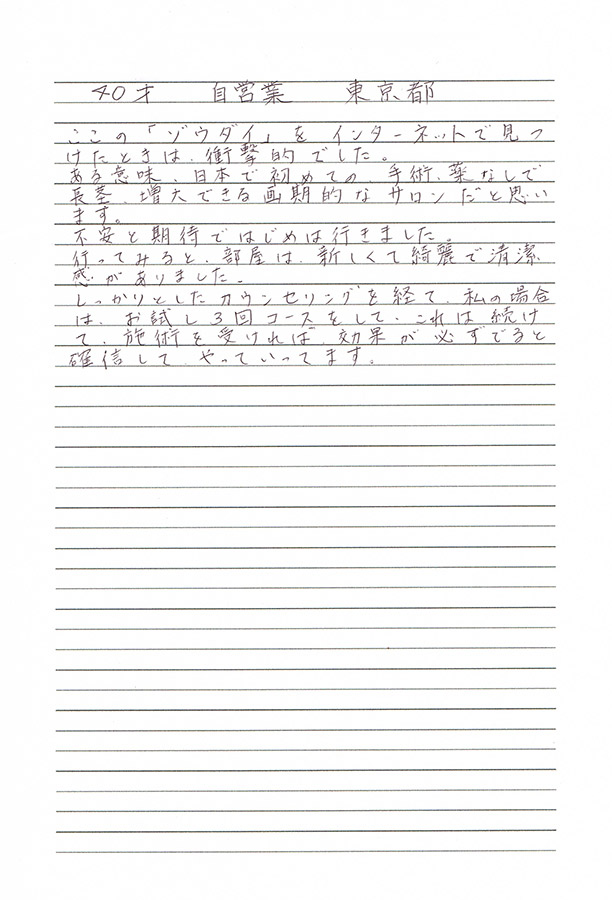 40才 自営業 東京都
ここの「ゾウダイ」をインターネットで見つ
けたときは、衝撃的でした。
ある意味、日本で初めての、手術、薬なしで
長茎、増大できる画期的なサロンだと思い
ます。
不安と期待ではじめは行きました。
行ってみると、部屋は、新しくて綺麗で清潔
感がありました。
しっかりとしたカウンセリングを経て、私の場合
は、お試し3回コースをして、これは続け
て、施術を受ければ、効果が必ずでると
確信して、やっていってます。